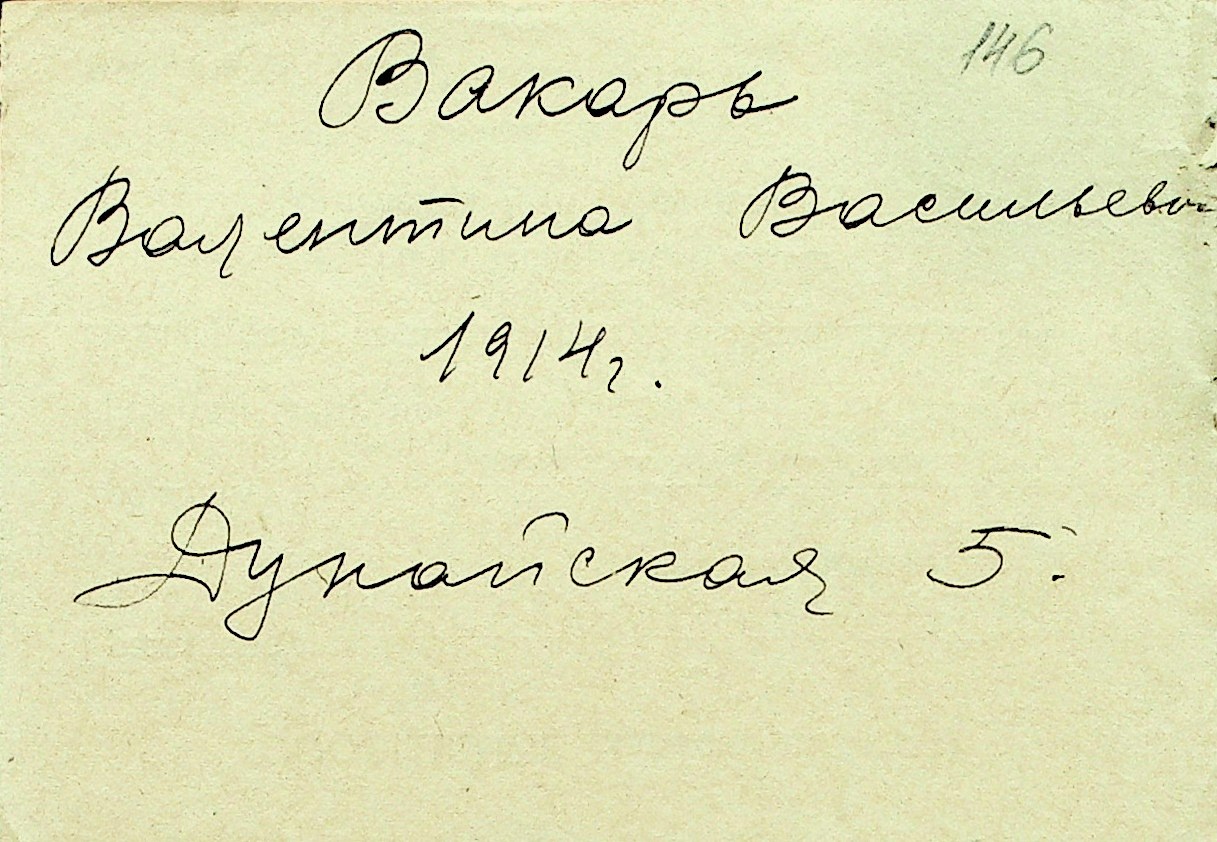 146
Вакарь
Валентина Васильевн
1914г.
Дунайская 5.